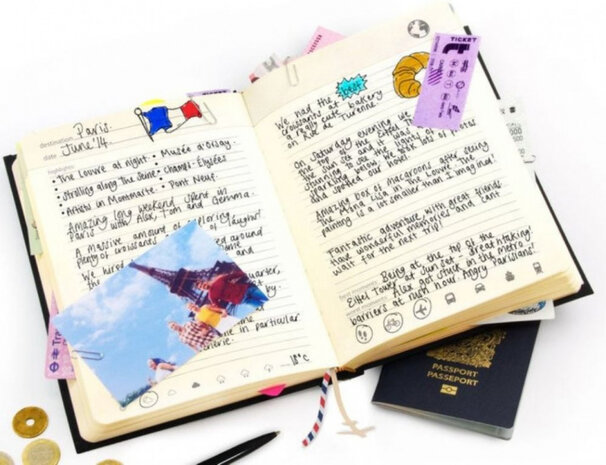 destination: Paris
date June '14.
highlights:
• The Louvre at night • Musée d'Orsay.
• Strolling along the Seine • Champs-Élysées
• Artists in Montmarte. • Pont Neuf.
Amazing long weekend spent in
Paris with Alex, Tom and Gemma.
A massive amount of exploring
plenty of croissants of laughs!
We hired around
and
quarter,
by.
in particular
18°C
We had the best
croissants at bakery
on Rue de Turenne.
On Saturday evening we
top of the Eiffel
the sun set and it was
stunning to see the lights of Paris
sparkling below. We took lots of photos
and spotted our hotel!
Amazing box of macaroons after seeing
the Mona Lisa in The Louvre. The
painting is a lot smaller than I imagined!
Fantastic adventure with great friends.
have wonderful memories and can't
wait for the next trip!
best moments Being at the top of the
Eiffel Tower at sun set - Breathtaking!
worst moments Alex got stuck in the metro
barriers at rush hour. Angry Parisians!
TICKET
t
PASSPORT
PASSEPORT